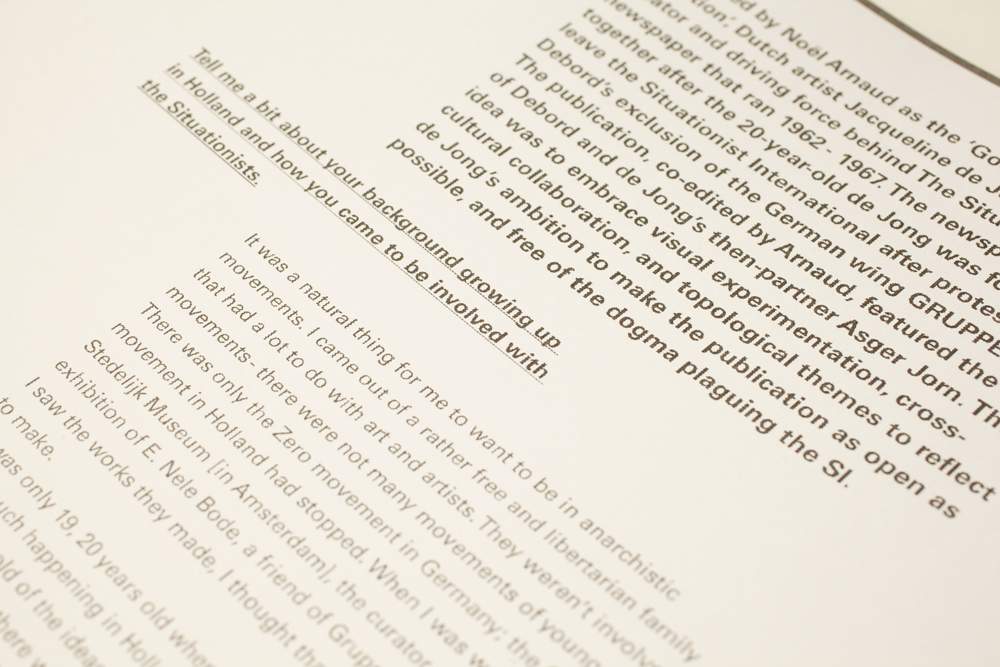 ed by Noël Arnaud as the 'Go
tion', Dutch artist Jacqueline de J
ator and driving force behind The Situ
newspaper that ran 1962- 1967. The newsp
together after the 20-year-old de Jong was f
leave the Situationist International after protes
Debord's exclusion of the German wing GRUPPE
The publication, co-edited by Arnaud, featured the
of Debord and de Jong's then-partner Asger Jorn. Th
idea was to embrace visual experimentation, cross-
cultural collaboration, and topological themes to reflect
de Jong's ambition to make the publication as open as
possible, and free of the dogma plaguing the SI.
Tell me a bit about your background growing up
in Holland and how you came to be involved with
the Situationists.
It was a natural thing for me to want to be in anarchistic
movements. I came out of a rather free and libertarian family
that had a lot to do with art and artists. They weren't involve
movements- there were not many movements of young
There was only the Zero movement in Germany; the
movement in Holland had stopped. When I was w
Stedelijk Museum [in Amsterdam], the curator
exhibition of E. Nele Bode, a friend of Grup
I saw the works they made, I thought tha
to make.
was only 19, 20 years old when
uch happening in Holl
old of the idea
here w